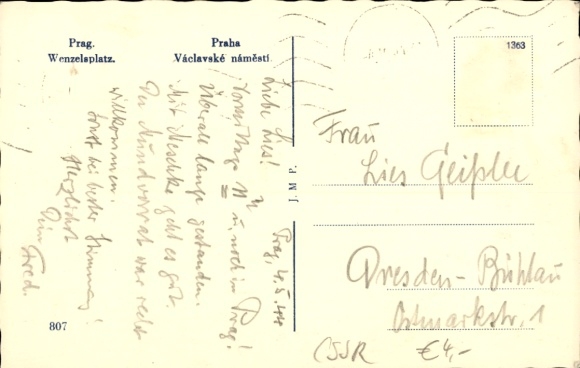 Prag.
Wenzelsplatz.
Praha
Václavské náměstí
1363
Prag, 4.5.44
Liebe Lies!
Vormittags 11 u. noch in Prag!
Überall lange gestanden.
Mit geht es gut.
Der Mundvorrat war recht
willkommen.
Sonst bei bester Stimmung!
Herzlichst
Dein Fred.
J. M. P.
807
Frau
Lies Geißler
Dresden-Bühlau
Ostmarkstr. 1
ČSSR €4,-